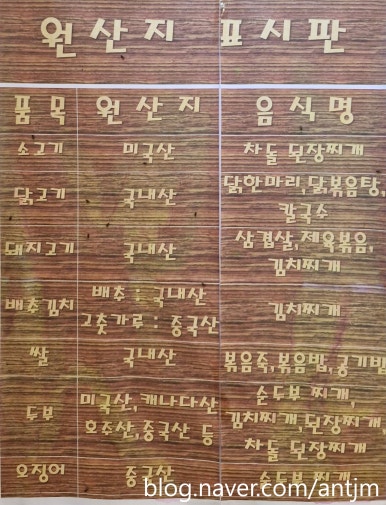 원산지 표시판
품목 원산지 음식명
소고기 미국산 차돌 된장찌개
닭고기 국내산 닭한마리,닭볶음탕,
칼국수
돼지고기 국내산 삼겹살,제육볶음,
김치찌개
배추김치 배추 : 국내산
고춧가루 : 중국산 김치찌개
쌀 국내산 볶음죽,볶음밥,공기밥
두부 미국산,캐나다산
호주산,중국산 등 순두부 찌개,
김치찌개,된장찌개,
차돌 된장찌개
오징어 중국산 순두부 찌개
blog.naver.com/antjm